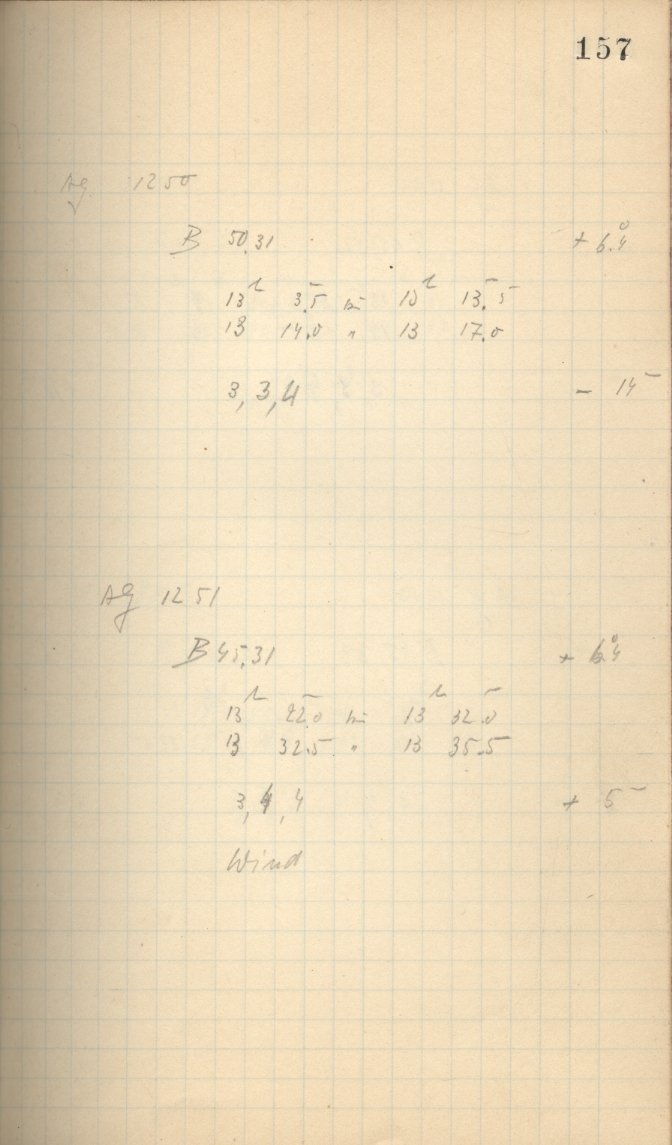 157
Ag 1250
B 50.31 + 6.°4
13ʰ 3.5 bis 13ʰ 13.5
13 14.0 " 13 17.0
3, 3, 4 - 14
AG 1251
B 45.31 + 6.°4
13ʰ 22.0 bis 13ʰ 32.0
13 32.5 " 13 35.5
3, 4, 4 + 5
Wind